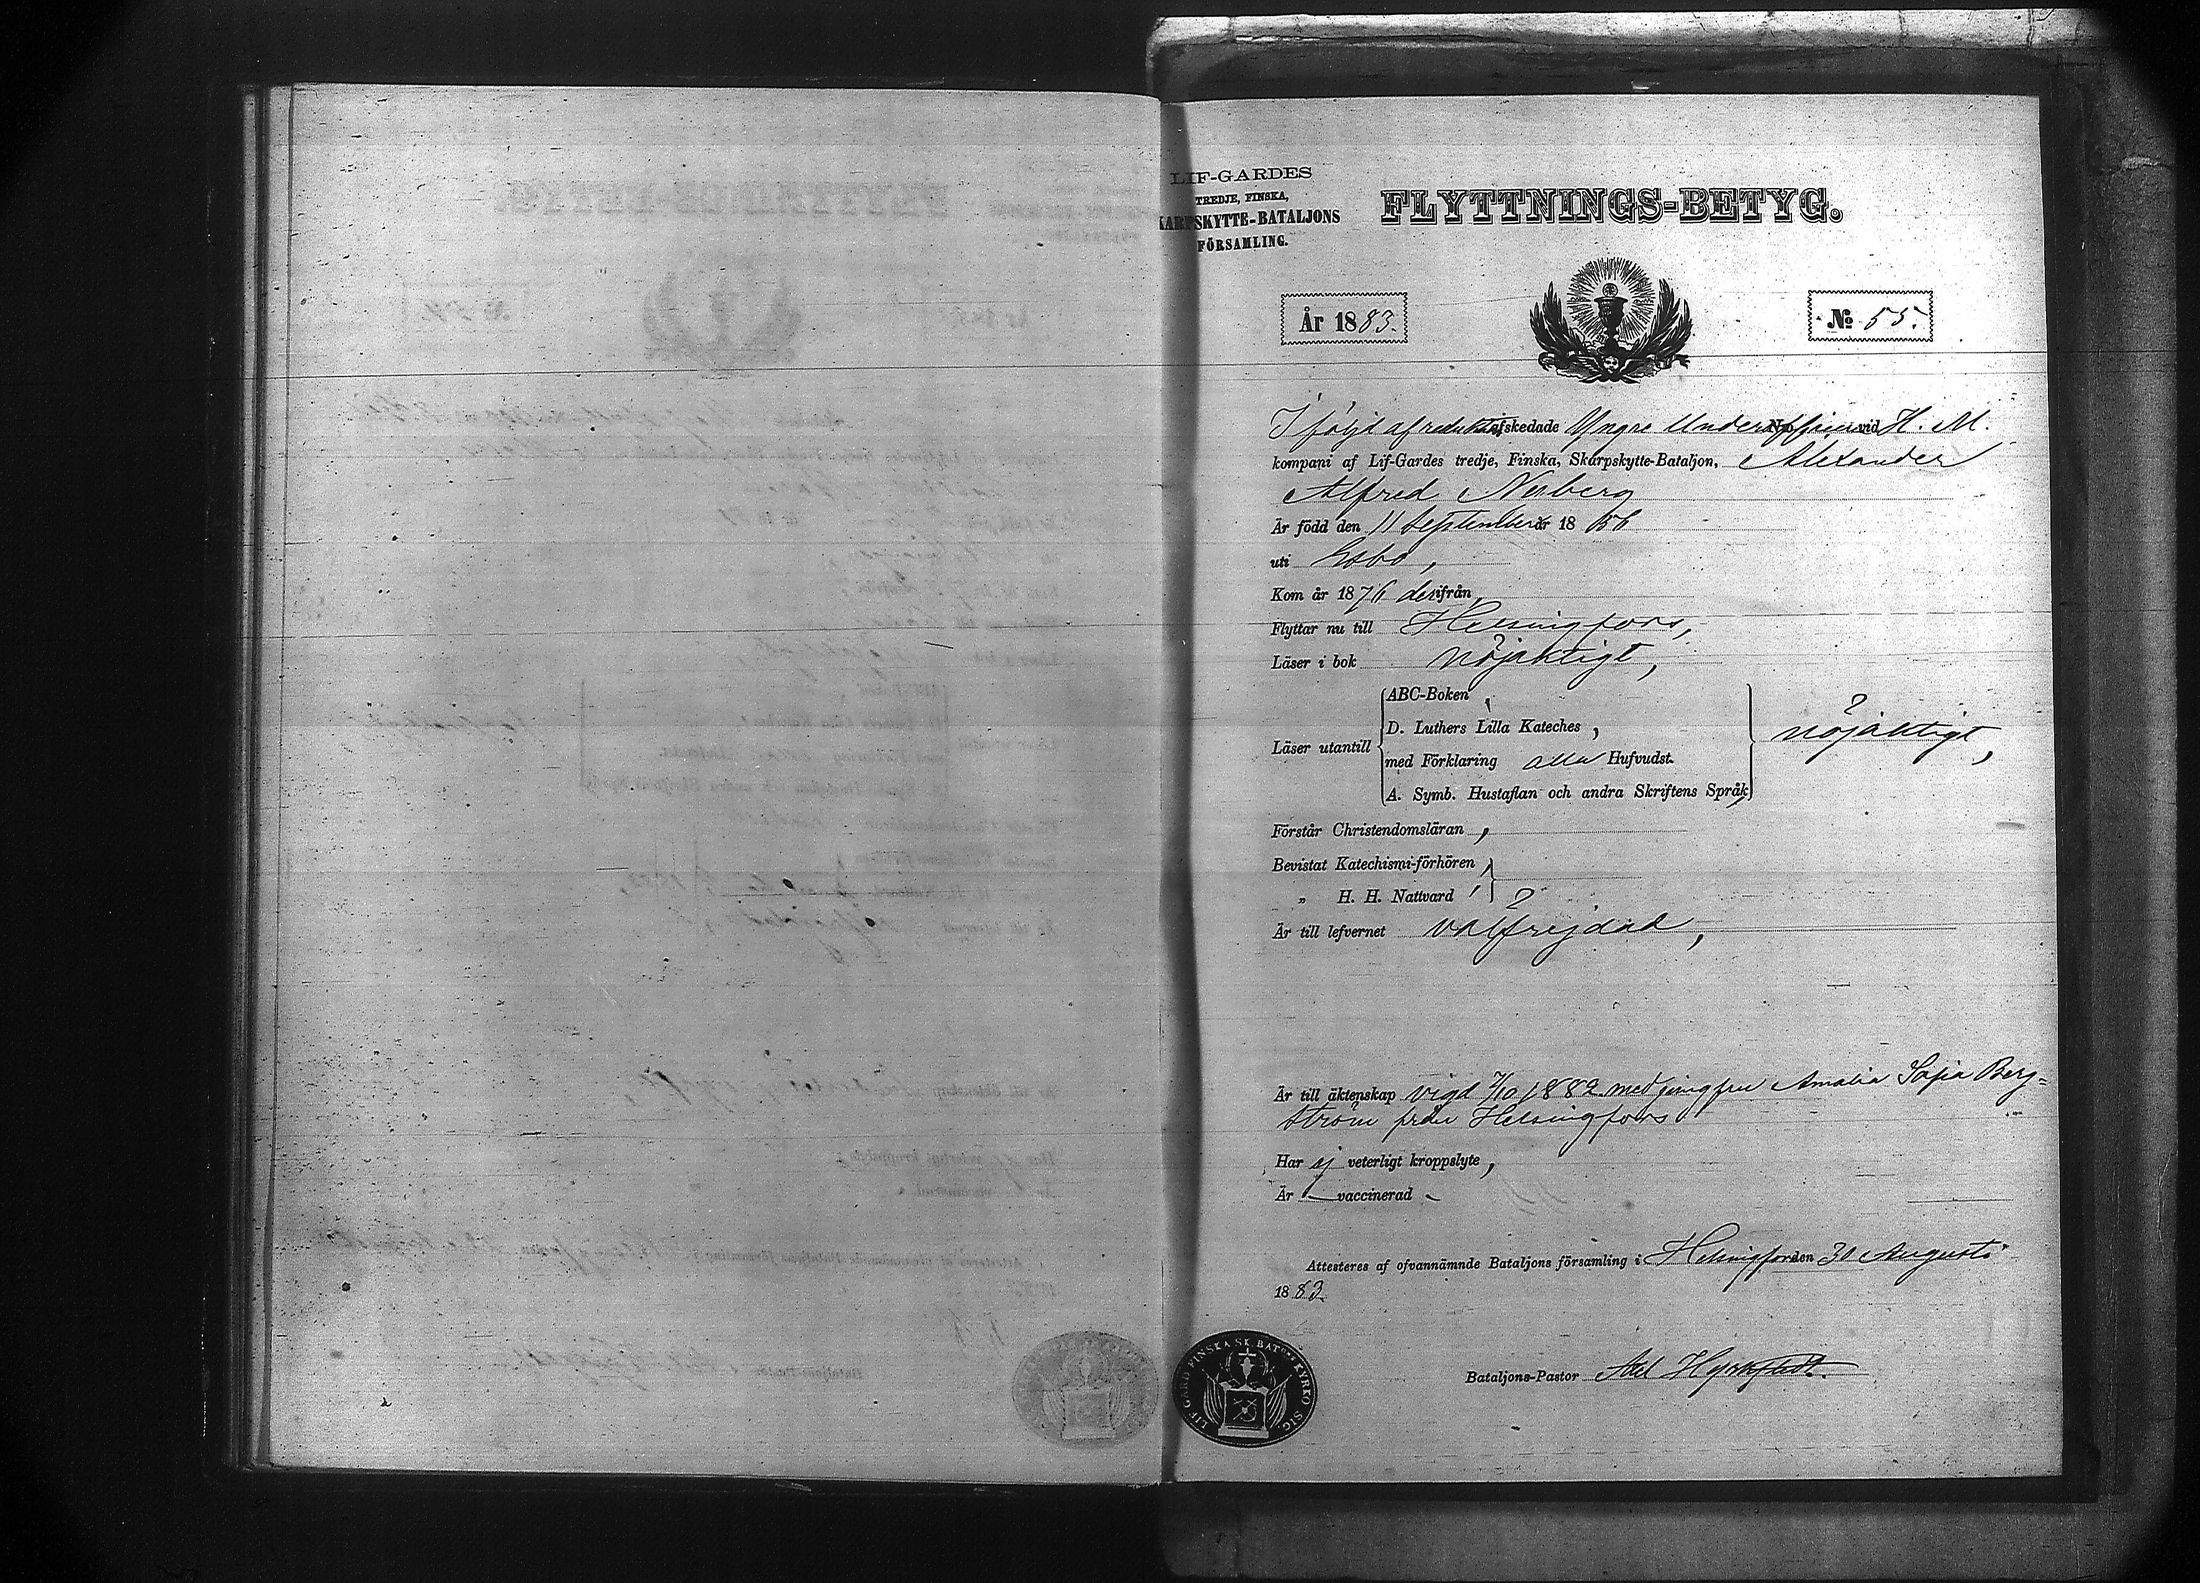 LIF-GARDES
TREDJE, FINSKA,
KARPSKYTTE-BATALJONS
FÖRSAMLING.
FLYTTNINGS-BETYG.
År 1883.
№ 55.
I följd af afskedade Yngre Underofficer vid H. M.
kompani af Lif-Gardes tredje, Finska, Skarpskytte-Bataljon, Alexander
Alfred Norberg
Är född den 11 September år 1856
uti Esbo,
Kom år 1876 derifrån,
Flyttar nu till Helsingfors,
Läser i bok nöjaktigt,
Läser utantill
ABC-Boken,
D. Luthers Lilla Kateches,
med Förklaring alla Hufvudst.
A. Symb. Hustaflan och andra Skriftens Språk,
nöjaktigt,
Förstår Christendomsläran,
Bevistat Katechismi-förhören,
„ H. H. Nattvard,
Är till lefvernet välfrejdad,
Är till äktenskap vigd 7/10 1882 med jungfru Amalia Sofia Berg=
ström från Helsingfors
Har ej veterligt kroppslyte,
Är vaccinerad
Attesteras af ofvannämnde Bataljons församling i Helsingfors den 30 Augusti
1883.
Bataljons-Pastor Axel Hyrkstedt.
LIF GARD FINSKA SK. BATns KYRKO SIG.